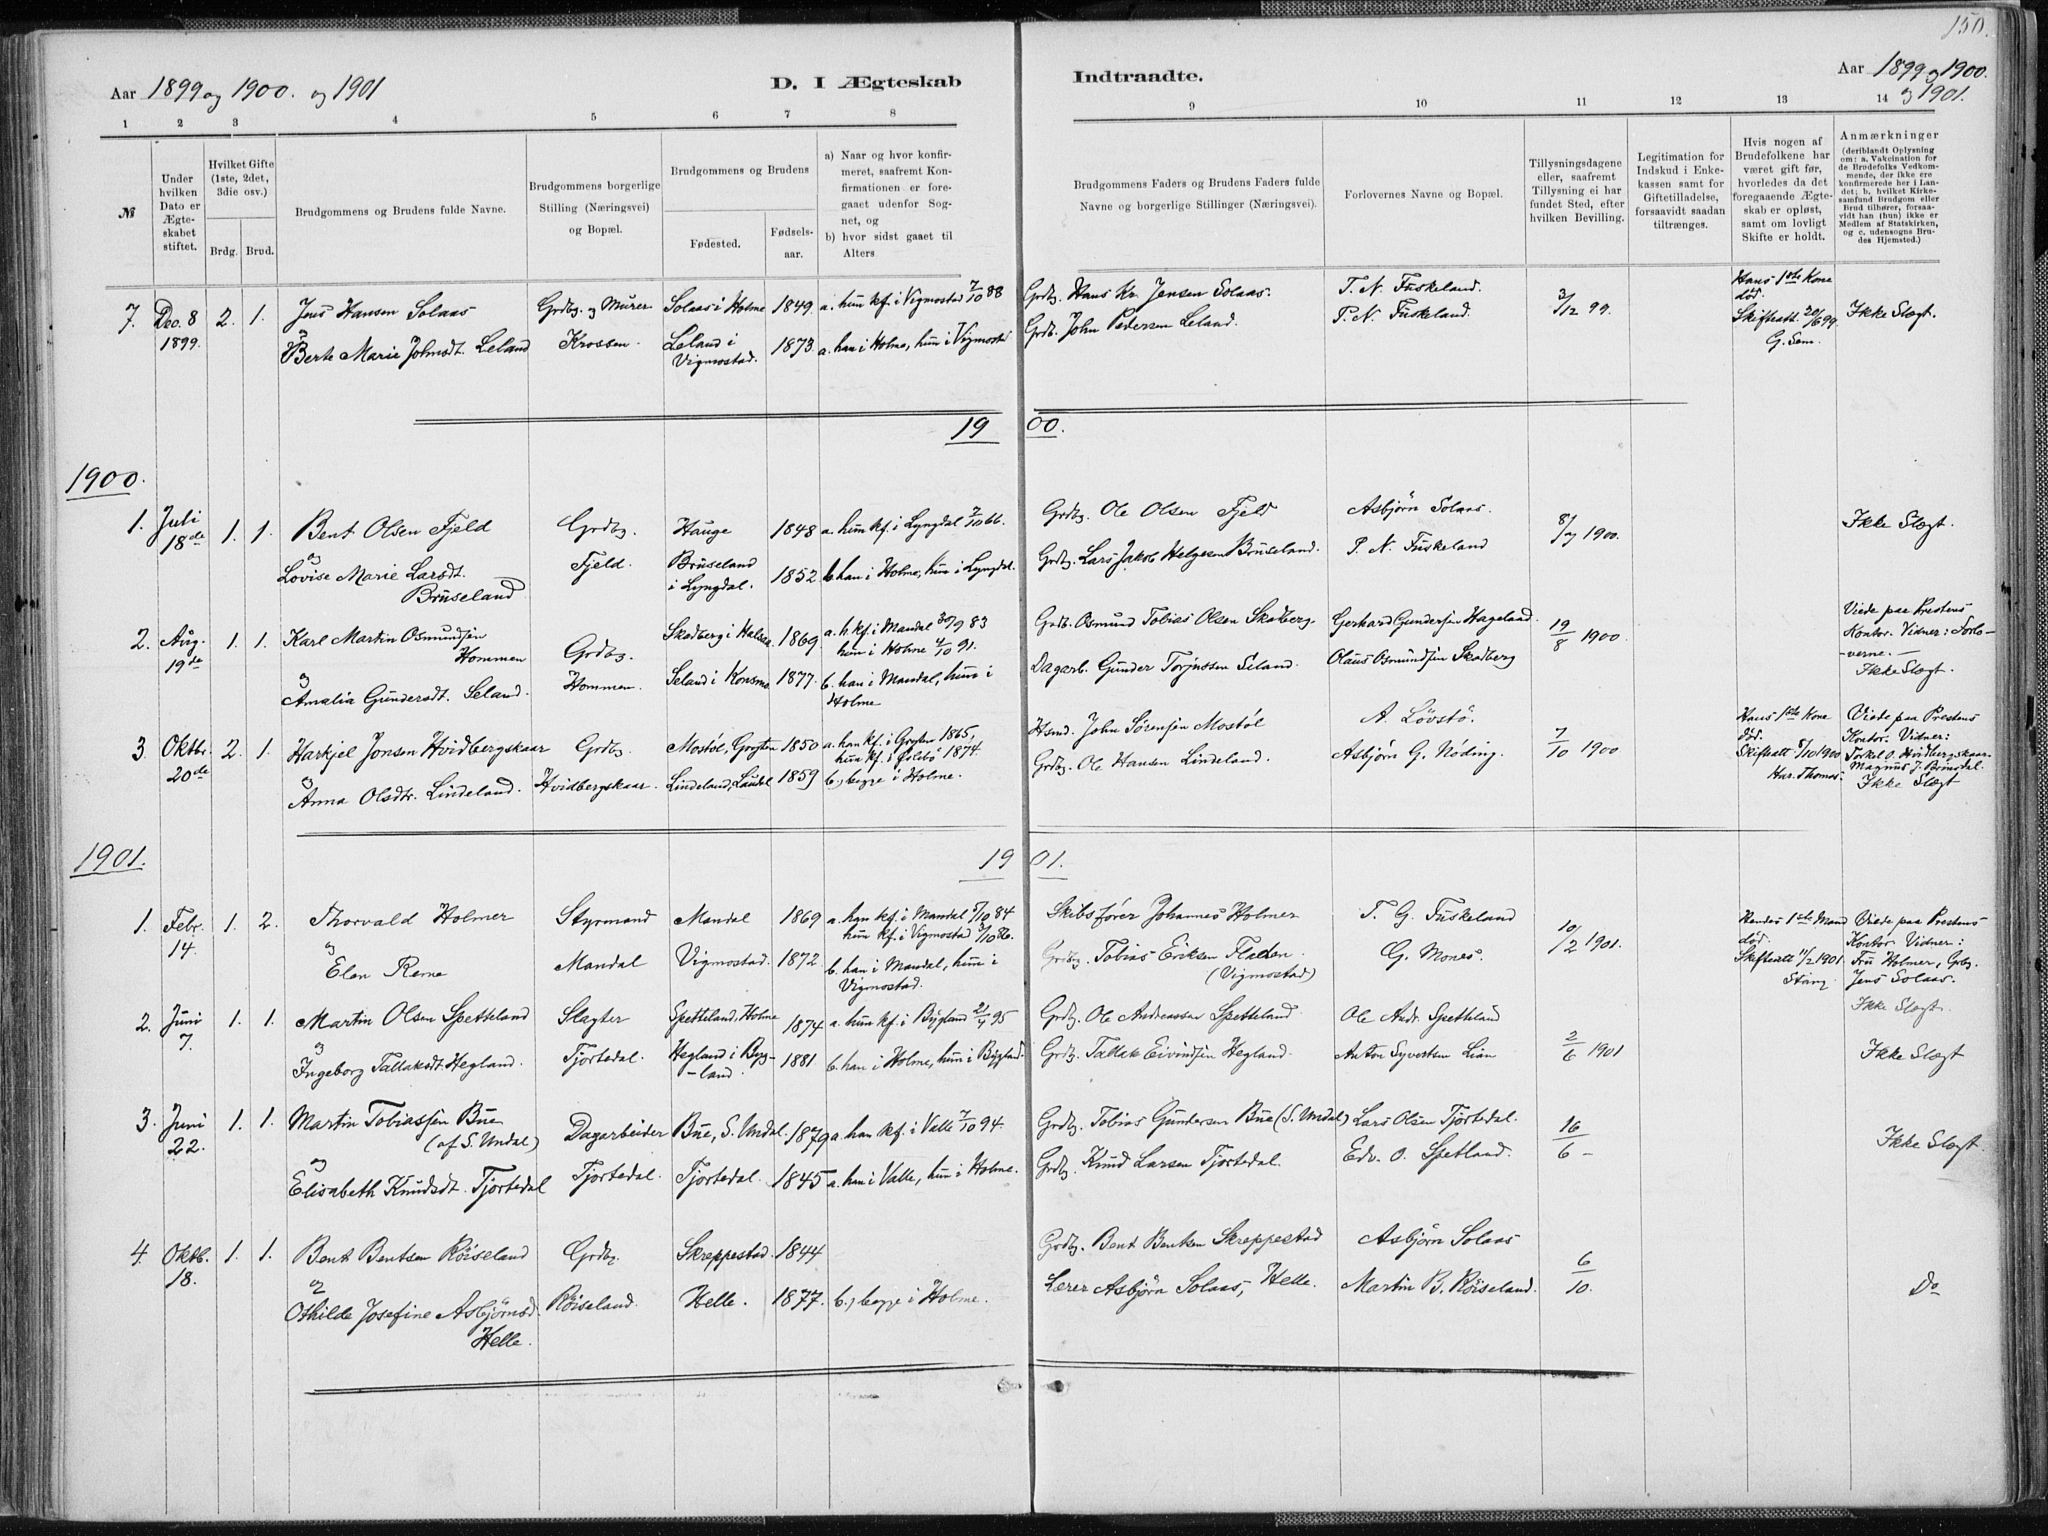 150.
Aar 1899 og 1900. og 1901
D. I Ægteskab Indtraadte.
Aar 1899 og 1900.
og 1901.
1 2 3 4 5 6 7 8 9 10 11 12 13 14
№
Under hvilken Dato er Ægteskabet stiftet.
Hvilket Gifte (1ste, 2det, 3die osv.)
Brdg. Brud.
Brudgommens og Brudens fulde Navne.
Brudgommens borgerlige Stilling (Næringsvei) og Bopæl.
Brudgommens og Brudens
Fødested.
Fødselsaar.
a) Naar og hvor konfirmeret, saafremt Konfirmationen er foregaaet udenfor Sognet, og
b) hvor sidst gaaet til Alters
Brudgommens Faders og Brudens Faders fulde Navne og borgerlige Stillinger (Næringsvei).
Forlovernes Navne og Bopæl.
Tillysningsdagene eller, saafremt Tillysning ei har fundet Sted, efter hvilken Bevilling.
Legitimation for Indskud i Enkekassen samt for Giftetilladelse, forsaavidt saadan tiltrænges.
Hvis nogen af Brudefolkene har været gift før, hvorledes da det foregaaende Ægteskab er opløst, samt om lovligt Skifte er holdt.
Anmærkninger (deriblandt Oplysning om: a. Vakcination for de Brudefolks Vedkommende, der ikke ere konfirmerede her i Landet; b. hvilket Kirkesamfund Brudgom eller Brud tilhører, forsaavidt han (hun) ikke er Medlem af Statskirken, og c. udensogns Brudes Hjemsted.)
7. Dec. 8 1899. 2. 1. Jens Hansen Solaas Grdbg. og Murer Solaas i Holme 1849. a. hun kf. i Vigmostad 7/10 88 Grdbg. Hans Kr. Jensen Solaas. T. N. Fuskeland. 3/12 99. Hans 1ste Kone død. Skifteatt. 20/6 99 G. Sem. Ikke Slægt.
og Berte Marie Johnsdt. Leland Krossen. Leland i Vigmostad. 1873 a. han i Holme, hun i Vigmostad Grdb. John Pedersen Leland. P. N. Fuskeland.
19 00.
1900.
1. Juli 18de 1. 1. Bent Olsen Fjeld Grdbg. Hauge 1848 a. hun kf. i Lyngdal 7/10 66. Grdbg. Ole Olsen Fjeld Asbjørn Solaas. 8/7 1900. Ikke Slægt.
og Lovise Marie Larsdt. Brüseland Fjeld. Brüseland i Lyngdal. 1852 b. han i Holme, hun i Lyngdal. Grdbg. Lars Jakob Helgesen Brüseland. P. N. Fuskeland
2. Aug. 19de 1. 1. Karl Martin Osmundsen Hommen Grdbg. Skadberg i Halsaa 1869 a. h. kf. i Mandal 30/9 83 hun i Holme 4/10 91. Grdb. Osmund Tobias Olsen Skadberg. Gerhard Gundersen Hageland 19/8 1900. Viede paa Prestens Kontor. Vidner: Forloverne. — Ikke Slægt.
og Amalia Gundersdt. Seland. Hommen. Seland i Konsmo 1877. b. han i Mandal, hun i Holme Dagarb. Gunder Torjussen Seland. Olaus Osmundsen Skadberg
3. Oktbr. 20de 2. 1. Harkjel Jonsen Hvidbergskaar Grdbg. Mostøl, Gryten 1850 a. han kf. i Gryten 1865, hun kf. i Øslebø 1874. Hsmd. John Sørensen Mostøl A. Løvstø. 7/10 1900 Hans 1ste Kone død. Skifteatt 5/10 1900 Har. Thomas. Viede paa Prestens Kontor. Vidner: Torkel O. Hvidbergskaar Magnus J. Brinsdal. Ikke Slægt
og Anna Olsdtr. Lindeland. Hvidbergskaar. Lindeland, Laudal 1859 b.) begge i Holme. Grdbg. Ole Hansen Lindeland. Asbjørn G. Nøding.
1901. 19 01.
1. Febr. 14. 1. 2. Thorvald Holmer Styrmand Mandal 1869 a. han kf. i Mandal 5/10 84 hun kf. i Vigmostad 3/10 86. Skibsfører Johannes Holmer T. G. Fuskeland 10/2 1901. Hendes 1ste Mand død. Skifteatt 11/2 1901. Stang. Viede paa Prestens Kontor Vidner: Fru Holmer, Grdbg. Jens Solaas. Ikke Slægt.
og Elen Reme Mandal Vigmostad. 1872 b. han i Mandal, hun i Vigmostad. Grdbg. Tobias Eriksen Fladen. (Vigmostad) G. Mones.
2. Juni 7. 1. 1. Martin Olsen Spetteland Slagter Spetteland. Holme 1874 a. hun kf. i Bygland 21/4 95 Grdbg. Ole Andreassen Spetteland Ole Andr. Spetteland 2/6 1901 Ikke Slægt
og Ingeborg Tallaksdt Hegland. Tjortedal. Hegland i Bygland. 1881 b. han i Holme, hun i Bygland Grdbg. Tallak Eivindsen Hegland. Anton Syvertsen Lian
3. Juni 22. 1. 1. Martin Tobiassen Bue (af S. Undal) Dagarbeider Bue, S. Undal. 1879 a. han kf. i Valle 7/10 94. Grdbg. Tobias Gundersen Bue (S. Undal) Lars Olsen Tjortedal. 16/6 — Ikke Slægt
og Elisabeth Knudsdt. Tjortedal Tjortedal. Tjortedal. 1845 a. han i Valle, hun i Holme. Grdbg. Knud Larsen Tjortedal. Edv. O. Spetland.
4. Oktb. 18. 1. 1. Bent Bentsen Röiseland Grdbg Skreppestad. 1844 Grdbg. Bent Bentsen Skreppestad Asbjørn Solaas 6/10. Do
og Othilde Josefine Asbjørnsd. Helle. Röiseland. Helle. 1877. b.) begge i Holme. Lærer Asbjørn Solaas, Helle. Martin B. Röiseland.